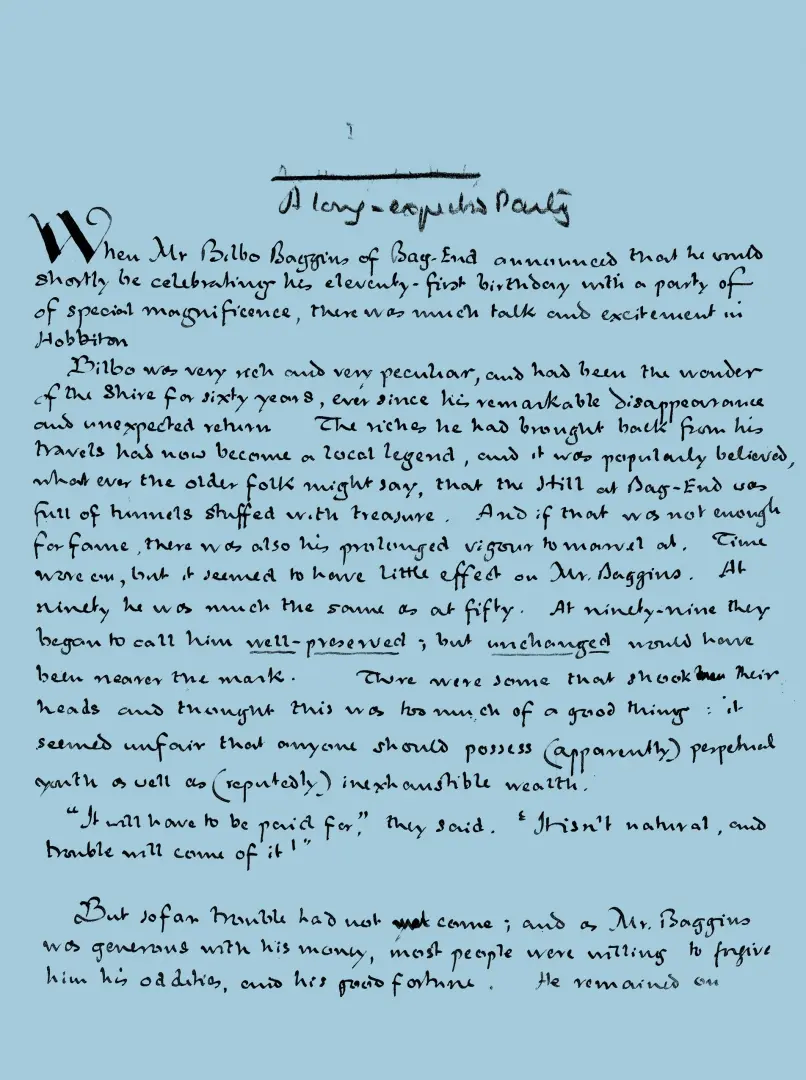 1
A long-expected Party
When Mr Bilbo Baggins of Bag-End announced that he would
shortly be celebrating his eleventy-first birthday with a party of
of special magnificence, there was much talk and excitement in
Hobbiton
Bilbo was very rich and very peculiar, and had been the wonder
of the Shire for sixty years, ever since his remarkable disappearance
and unexpected return The riches he had brought back from his
travels had now become a local legend, and it was popularly believed,
what ever the older folk might say, that the Hill at Bag-End was
full of tunnels stuffed with treasure. And if that was not enough
for fame, there was also his prolonged vigour to marvel at. Time
wore on, but it seemed to have little effect on Mr. Baggins. At
ninety he was much the same as at fifty. At ninety-nine they
began to call him well-preserved; but unchanged would have
been nearer the mark. There were some that shook their
heads and thought this was too much of a good thing: it
seemed unfair that anyone should possess (apparently) perpetual
youth as well as (reputedly) inexhaustible wealth.
"It will have to be paid for," they said. "It isn't natural, and
trouble will come of it!"
But so far trouble had not come; and as Mr. Baggins
was generous with his money, most people were willing to forgive
him his oddities, and his good fortune. He remained on